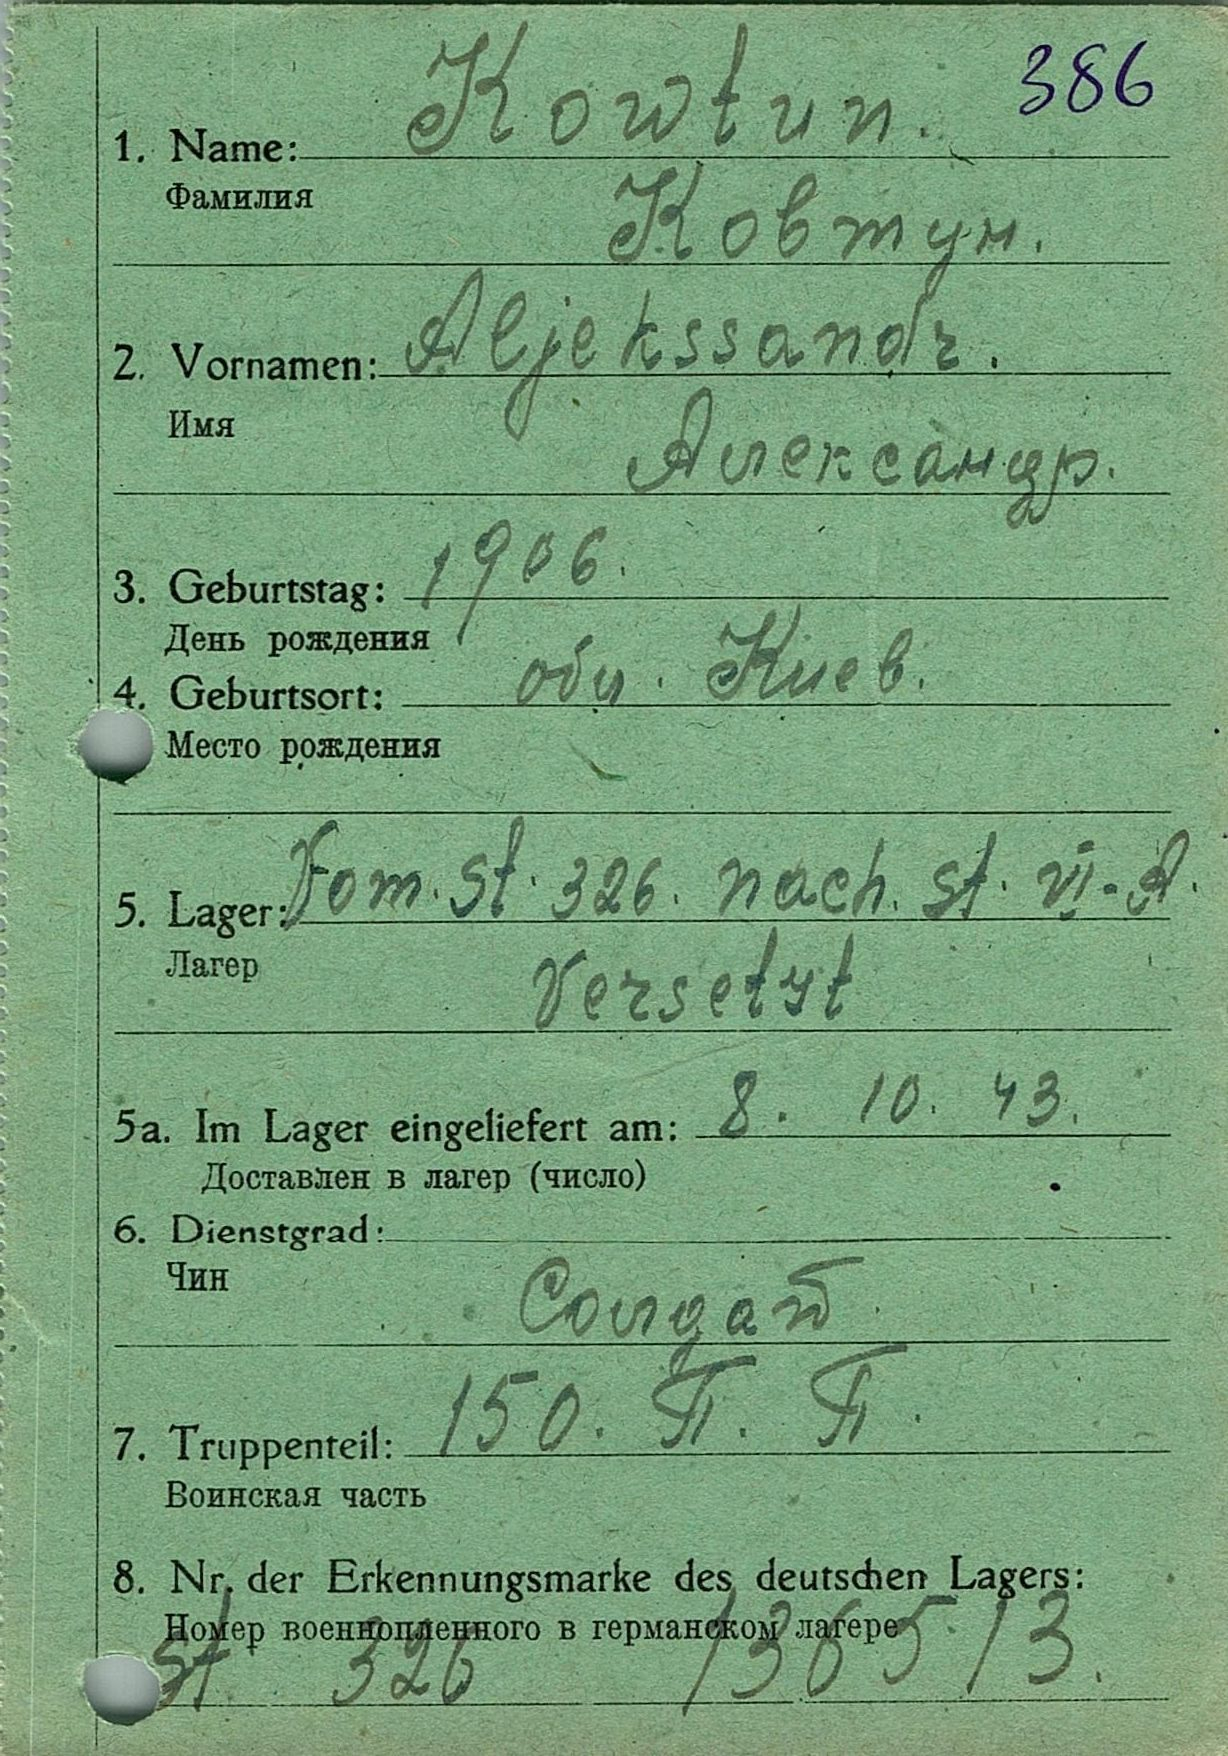 386
1. Name: Kowtun.
Фамилия
Ковтун.
2. Vornamen: Aljekssandr.
Имя
Александр.
3. Geburtstag: 1906.
День рождения
4. Geburtsort: обл. Киев.
Место рождения
5. Lager: Vom. St. 326. nach. St. VI-A.
Лагер
Versetzt
5a. Im Lager eingeliefert am: 8. 10. 43.
Доставлен в лагер (число)
6. Dienstgrad:
Чин
Солдат
7. Truppenteil: 150. П. П.
Воинская часть
8. Nr. der Erkennungsmarke des deutschen Lagers:
Номер военнопленного в германском лагере
St 326 136513.